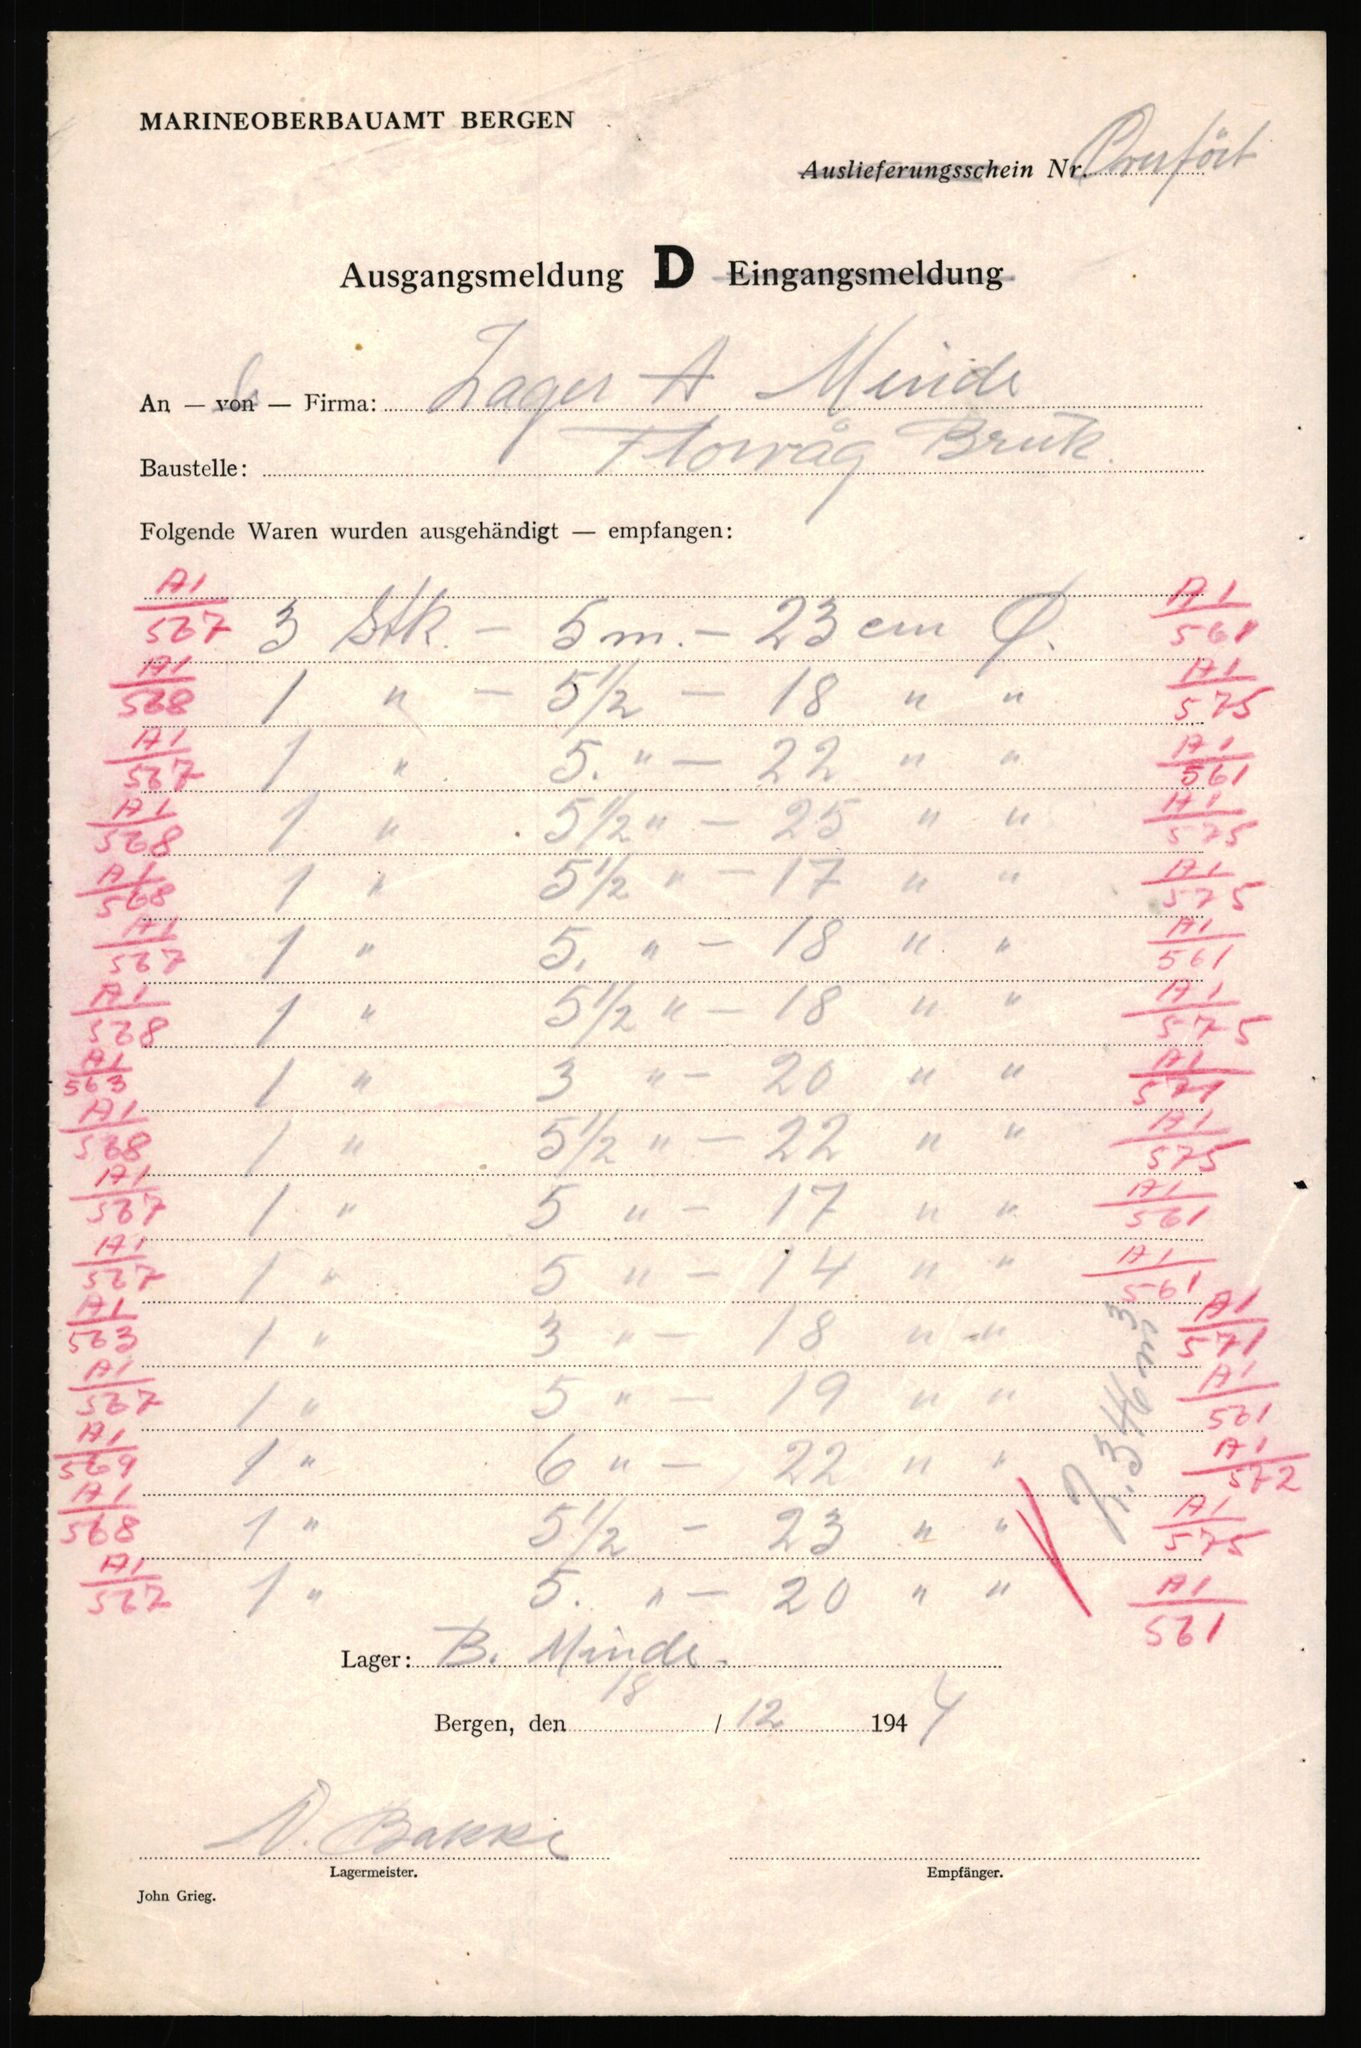 MARINEOBERBAUAMT BERGEN
Auslieferungsschein Nr. Overfört
Ausgangsmeldung D Eingangsmeldung
An — von — Firma: Lager A Minde
Baustelle: Florvåg Bruk.
Folgende Waren wurden ausgehändigt — empfangen:
A1/567 3 Stk. — 5 m. — 23 cm Ø. A1/561
A1/568 1 " — 5 1/2 — 18 " " A1/575
A1/567 1 " 5. " — 22 " " A1/561
A1/568 1 " 5 1/2 " — 25 " " A1/575
A1/568 1 " 5 1/2 " — 17 " " A1/575
A1/567 1 " 5. " — 18 " " A1/561
A1/568 1 " 5 1/2 " — 18 " " A1/575
A1/563 1 " 3 " — 20 " " A1/571
A1/568 1 " 5 1/2 " — 22 " " A1/575
A1/567 1 " 5 " — 17 " " A1/561
A1/567 1 " 5 " — 14 " " A1/561
A1/563 1 " 3 " — 18 " " A1/571
A1/567 1 " 5 " — 19 " " A1/561
A1/569 1 " 6 " — 22 " " A1/572
A1/568 1 " 5 1/2 — 23 " " A1/575
A1/567 1 " 5. " — 20 " " A1/561
346 m³
Lager: B. Minde.
Bergen, den 18 / 12 1944
Bakke
Lagermeister. Empfänger.
John Grieg.